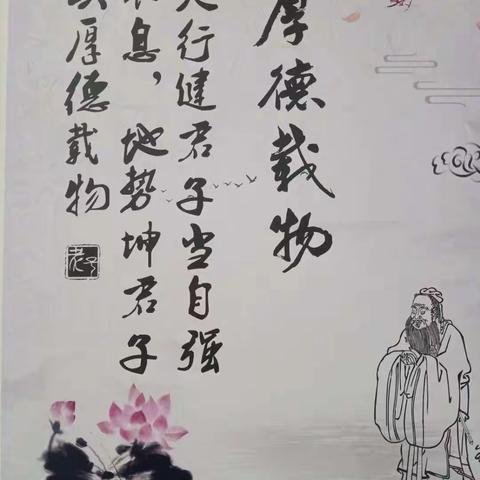 厚德载物
天行健君子当自强
不息，地势坤君子
以厚德载物
老子